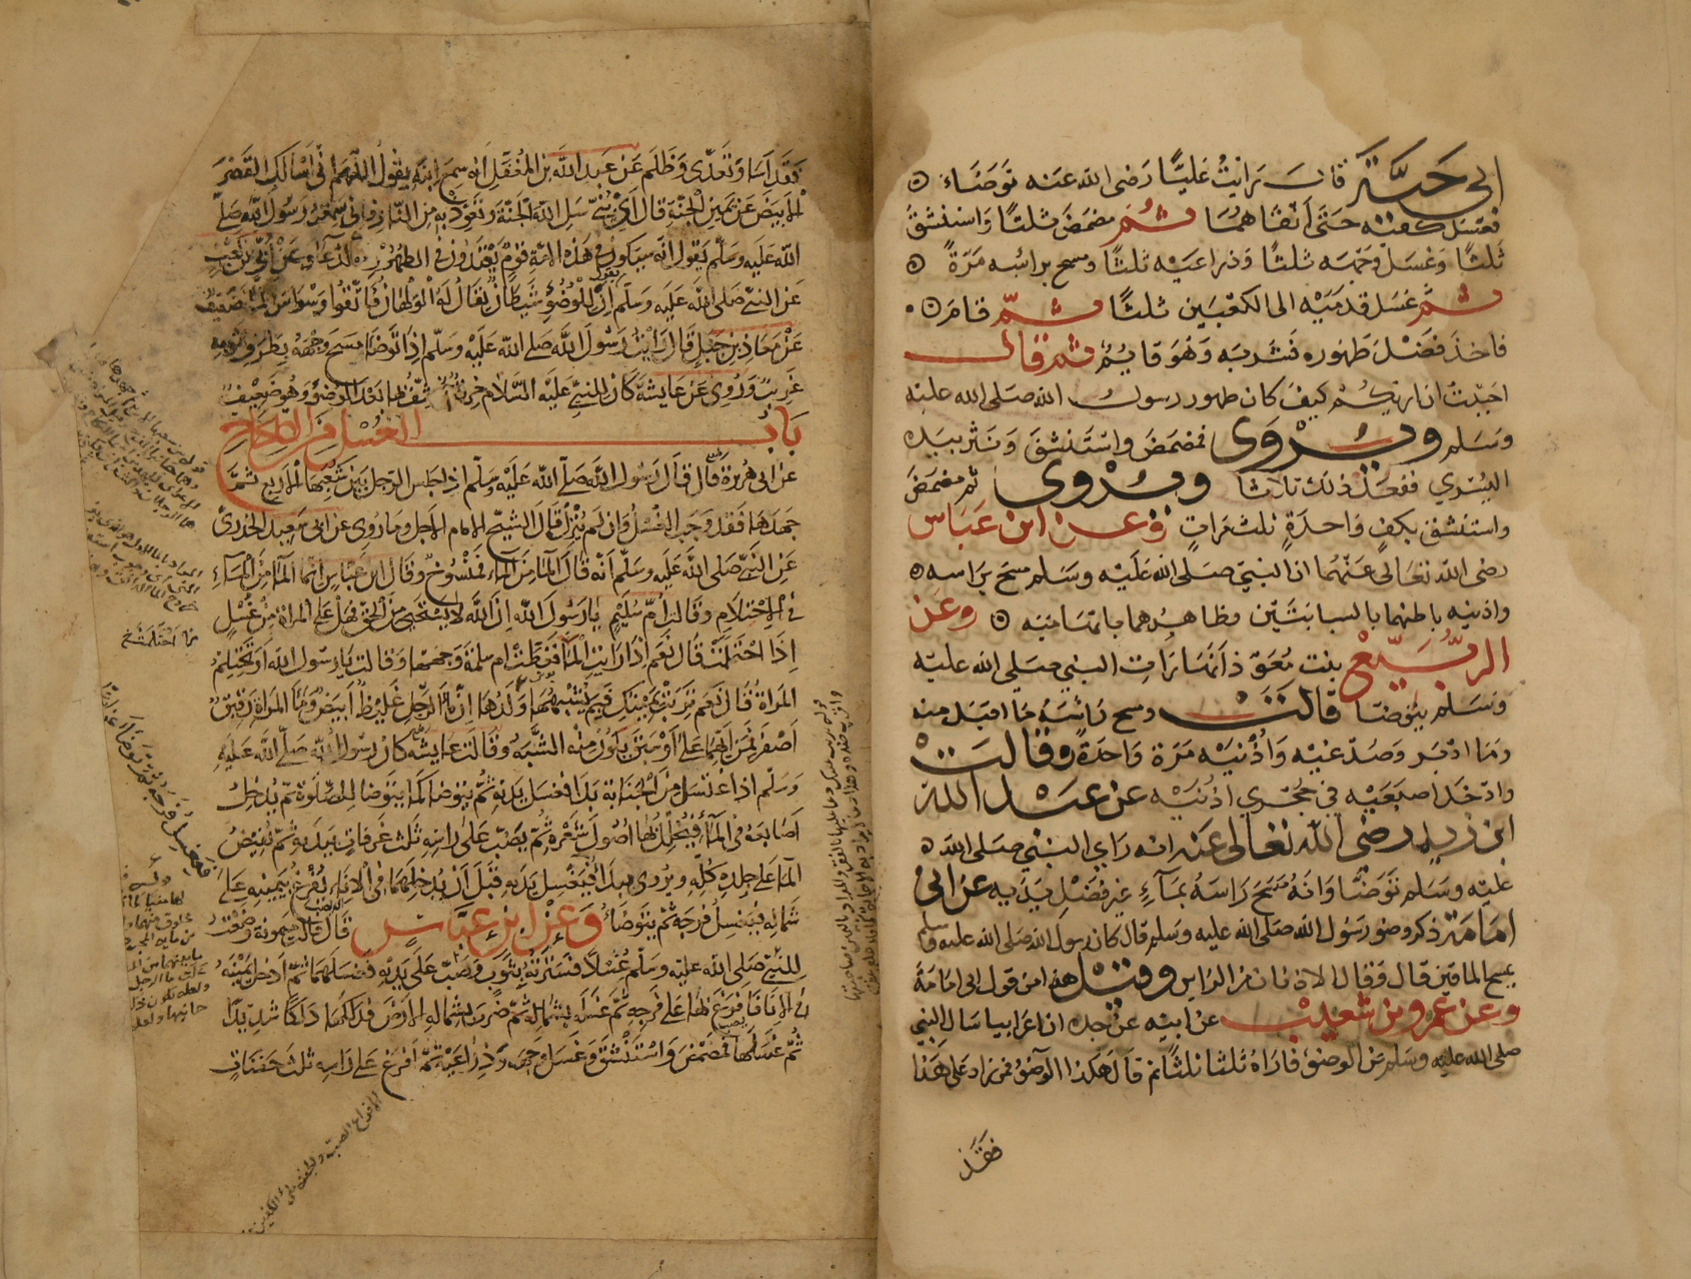 ابي حية قال رايت عليا رضى الله عنه توضاء
فغسل كفيه حتى انقاهما ثم مضمض ثلثا واستنشق
ثلثا وغسل وجهه ثلثا وذراعيه ثلثا ومسح براسه مرة
ثم غسل قدميه الى الكعبين ثلثا ثم قام
فاخذ فضل طهوره فشربه وهو قايم ثم قال
احببت ان اريكم كيف كان طهور رسول الله صلى الله عليه
وسلم ويروى فمضمض واستنشق ونثر بيده
اليسرى ففعل ذلك ثلاثا ويروى ثم مضمض
واستنشق بكف واحدة ثلث مرات وعن ابن عباس
رضى الله تعالى عنهما ان النبي صلى الله عليه وسلم مسح براسه
واذنيه باطنهما بالسبابتين وظاهرهما بابهاميه وعن
الربيع بنت معوذ انها رات النبي صلى الله عليه
وسلم يتوضا قالت ومسح راسه ما اقبل منه
وما ادبر وصدغيه واذنيه مرة واحدة وقالت
وادخل اصبعيه في جحري اذنيه عن عبد الله
ابن زيد رضى الله تعالى عنه انه راي النبي صلى الله
عليه وسلم توضا وانه مسح راسه بماء غير فضل يديه عن ابي
امامة ذكر وضو رسول الله صلى الله عليه وسلم قال كان رسول الله صلى الله عليه وسلم
يمسح الماقين قال وقال الاذنان من الراس وقيل هذا من قول ابى امامة
وعن عمرو بن شعيب عن ابيه عن جده ان اعرابيا سال النبي
صلى الله عليه وسلم عن الوضؤ فاراه ثلثا ثلثا ثم قال هكذا الوضؤ فمن زاد على هذا
فقد
فقد اسا وتعدى وظلم عن عبد الله بن المغفل انه سمع ابنه يقول اللهم انى اسالك القصر
الابيض عن يمين الجنة قال اى بنى سل الله الجنة وتعوذ به من النار فانى سمعت رسول الله صلى
الله عليه وسلم يقول انه سيكون في هذه الامة قوم يعتدون في الطهور والدعاء وعن ابى بن كعب
عن النبي صلى الله عليه وسلم ان للوضؤ شيطانا يقال له الولهان فاتقوا وسواس الماء ضعيف
عن معاذ بن جبل قال رايت رسول الله صلى الله عليه وسلم اذا توضا مسح وجهه بطرف ثوبه
غريب وروى عن عايشة كان للنبي عليه السلام خرقة ينشف بها بعد الوضؤ وهو ضعيف
باب الغسل من الصحاح
عن ابى هريرة قال قال رسول الله صلى الله عليه وسلم اذا جلس الرجل بين شعبها الاربع ثم
جهدها فقد وجب الغسل وان لم ينزل قال الشيخ الامام الاجل وما روى عن ابى سعيد الخدرى
عن النبي صلى الله عليه وسلم انه قال الماء من الماء فمنسوخ وقال ابن عباس انما الماء من الماء
في الاحتلام وقالت ام سليم يا رسول الله ان الله لا يستحيى من الحق فهل على المراة من غسل
اذا احتلمت قال نعم اذا رات الماء فغطت ام سلمة وجهها وقالت يا رسول الله او تحتلم
المراة قال نعم تربت يمينك فبم يشبهها ولدها ان ماء الرجل غليظ ابيض وماء المراة رقيق
اصفر فمن ايهما علا او سبق يكون منه الشبه وقالت عايشة كان رسول الله صلى الله عليه
وسلم اذا اغتسل من الجنابة بدا فغسل يديه ثم يتوضا كما يتوضا للصلوة ثم يدخل
اصابعه في الماء فيخلل بها اصول شعره ثم يصب على راسه ثلث غرفات بيديه ثم يفيض
الماء على جلده كله ويروى يبدا فيغسل يديه قبل ان يدخلهما في الاناء ثم يفرغ بيمينه على
شماله فيغسل فرجه ثم يتوضاء وعن ابن عباس قال قالت ميمونة وضعت
للنبي صلى الله عليه وسلم غسلا فسترته بثوب وصب على يديه فغسلهما ثم ادخل يمينه
في الاناء فافرغ بها على فرجه ثم غسله بشماله ثم ضرب بشماله الارض فدلكها دلكا شديدا
ثم غسلها فمضمض واستنشق وغسل وجهه وذراعيه ثم افرغ على راسه ثلث حفنات